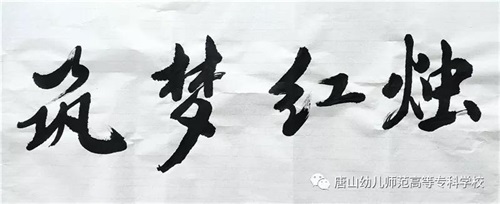 筑梦红烛
唐山幼儿师范高等专科学校